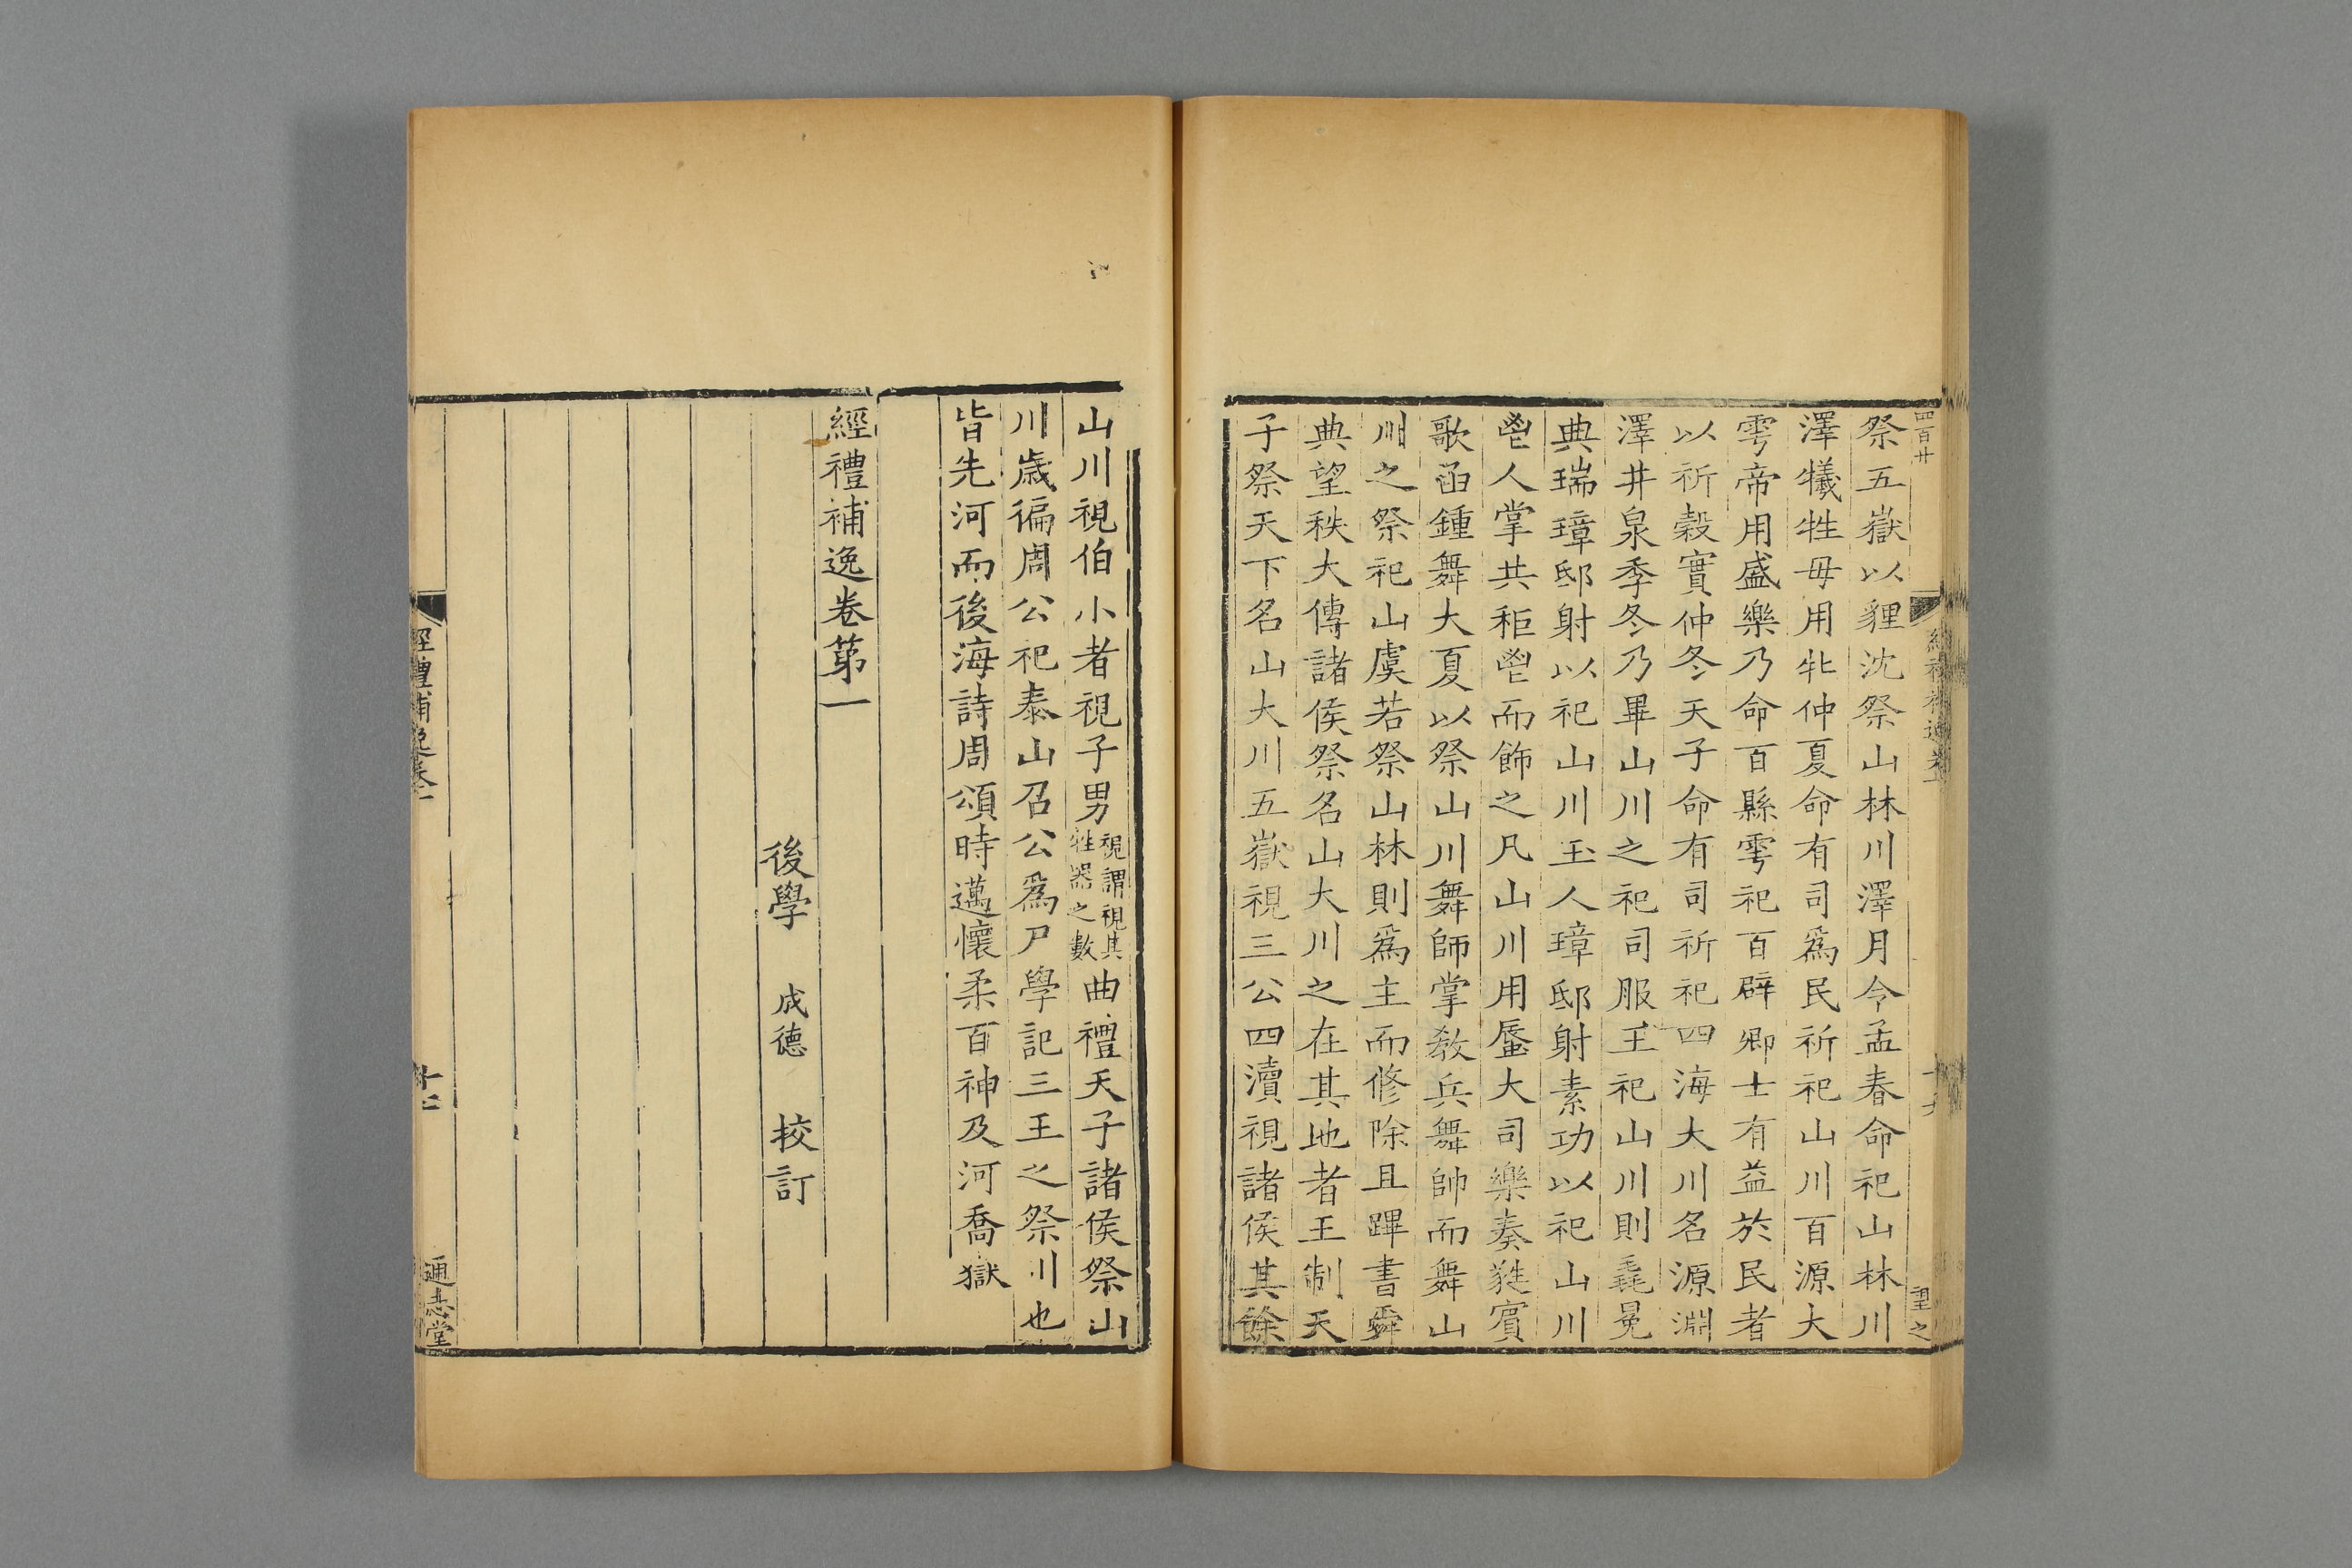 四百廾
祭五嶽以貍沈祭山林川澤月令孟春命祀山林川
澤犧牲毋用牝仲夏命有司爲民祈祀山川百源大
雩帝用盛樂乃命百縣雩祀百辟卿士有益於民者
以祈穀實仲冬天子命有司祈祀四海大川名源淵
澤井泉季冬乃畢山川之祀司服王祀山川則毳冕
典瑞璋邸射以祀山川玉人璋邸射素功以祀山川
鬯人掌共秬鬯而飾之凡山川用蜃大司樂奏蕤賓
歌函鍾舞大夏以祭山川舞師掌敎兵舞帥而舞山
川之祭祀山虞若祭山林則爲主而修除且蹕書舜
典望秩大傳諸侯祭名山大川之在其地者王制天
子祭天下名山大川五嶽視三公四瀆視諸侯其餘
山川視伯小者視子男視謂視其牲器之數曲禮天子諸侯祭山
川歲徧周公祀泰山召公爲尸學記三王之祭川也
皆先河而後海詩周頌時邁懷柔百神及河喬嶽
經禮補逸卷第一
後學 成德 校訂
經禮補逸卷一
十七
通志堂